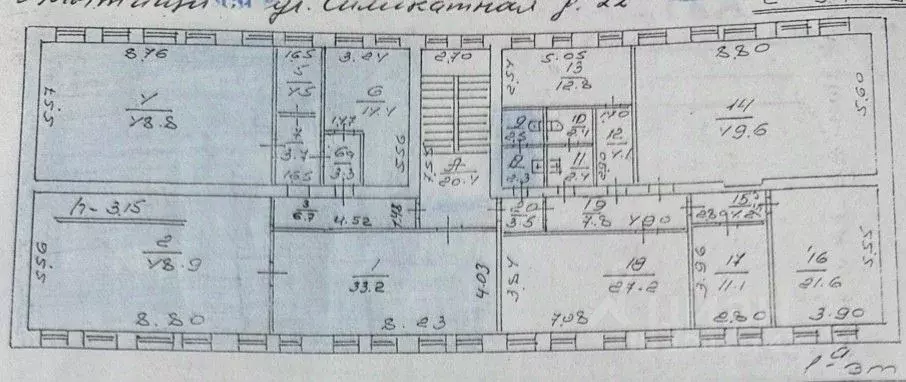 ул. Силикатная д. 22
8.76
1.65
3.24
2.70
5.05
8.80
5.57
2.54
13
12.8
5.60
4
48.8
6
17.4
14
49.6
1.47
5.56
7.55
А
20.4
3.3
1.65
10
2.4
11
2.4
12
4.1
2.90
8
2.3
h-3.15
3
6.7
4.52
1.48
3.5
19
7.8
4.90
15
2.89
5.56
2
48.9
1
33.2
4.03
3.54
18
27.2
3.96
17
11.1
16
21.6
5.55
8.80
8.23
7.08
2.80
3.90